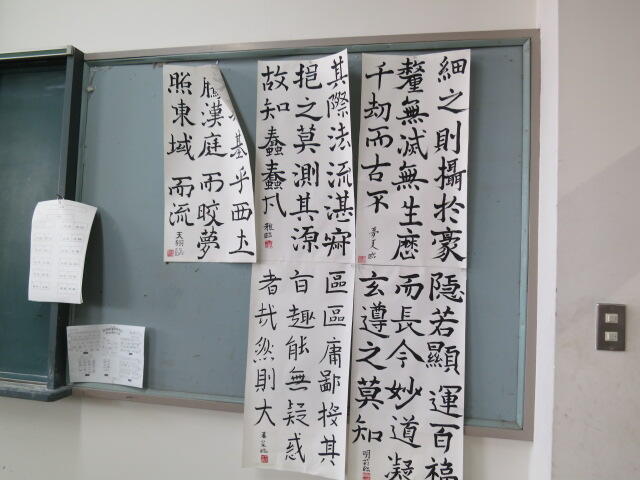 細之則攝於豪
釐無滅無生歷
千劫而古不
隱若顯運百福
而長今妙道凝
玄遵之莫知
其際法流湛寂
挹之莫測其源
故知蠢蠢凡
雅臨
區區庸鄙投其
旨趣能無疑惑
者哉然則大
基乎西土
騰漢庭而皎夢
照東域而流